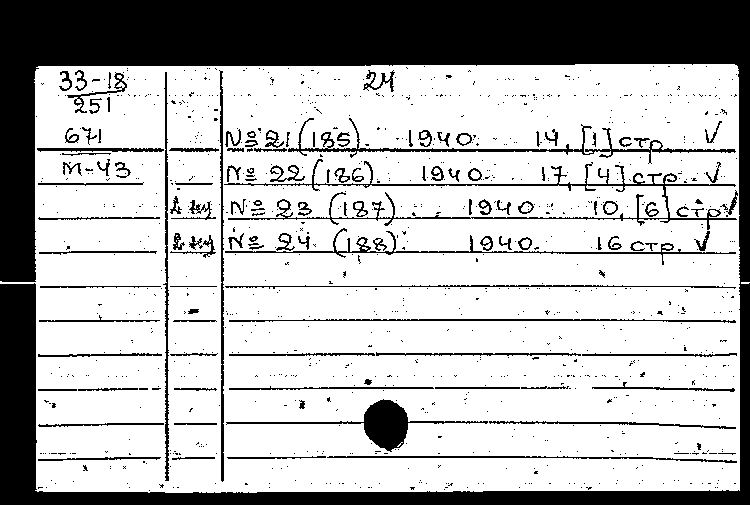 33-18 24
251
671 № 21 (185). 1940. 14, [1] стр. ✓
М-43 № 22 (186). 1940. 17, [4] стр. ✓
2 экз № 23 (187). 1940. 10, [6] стр ✓
2 экз № 24 (188). 1940. 16 стр. ✓